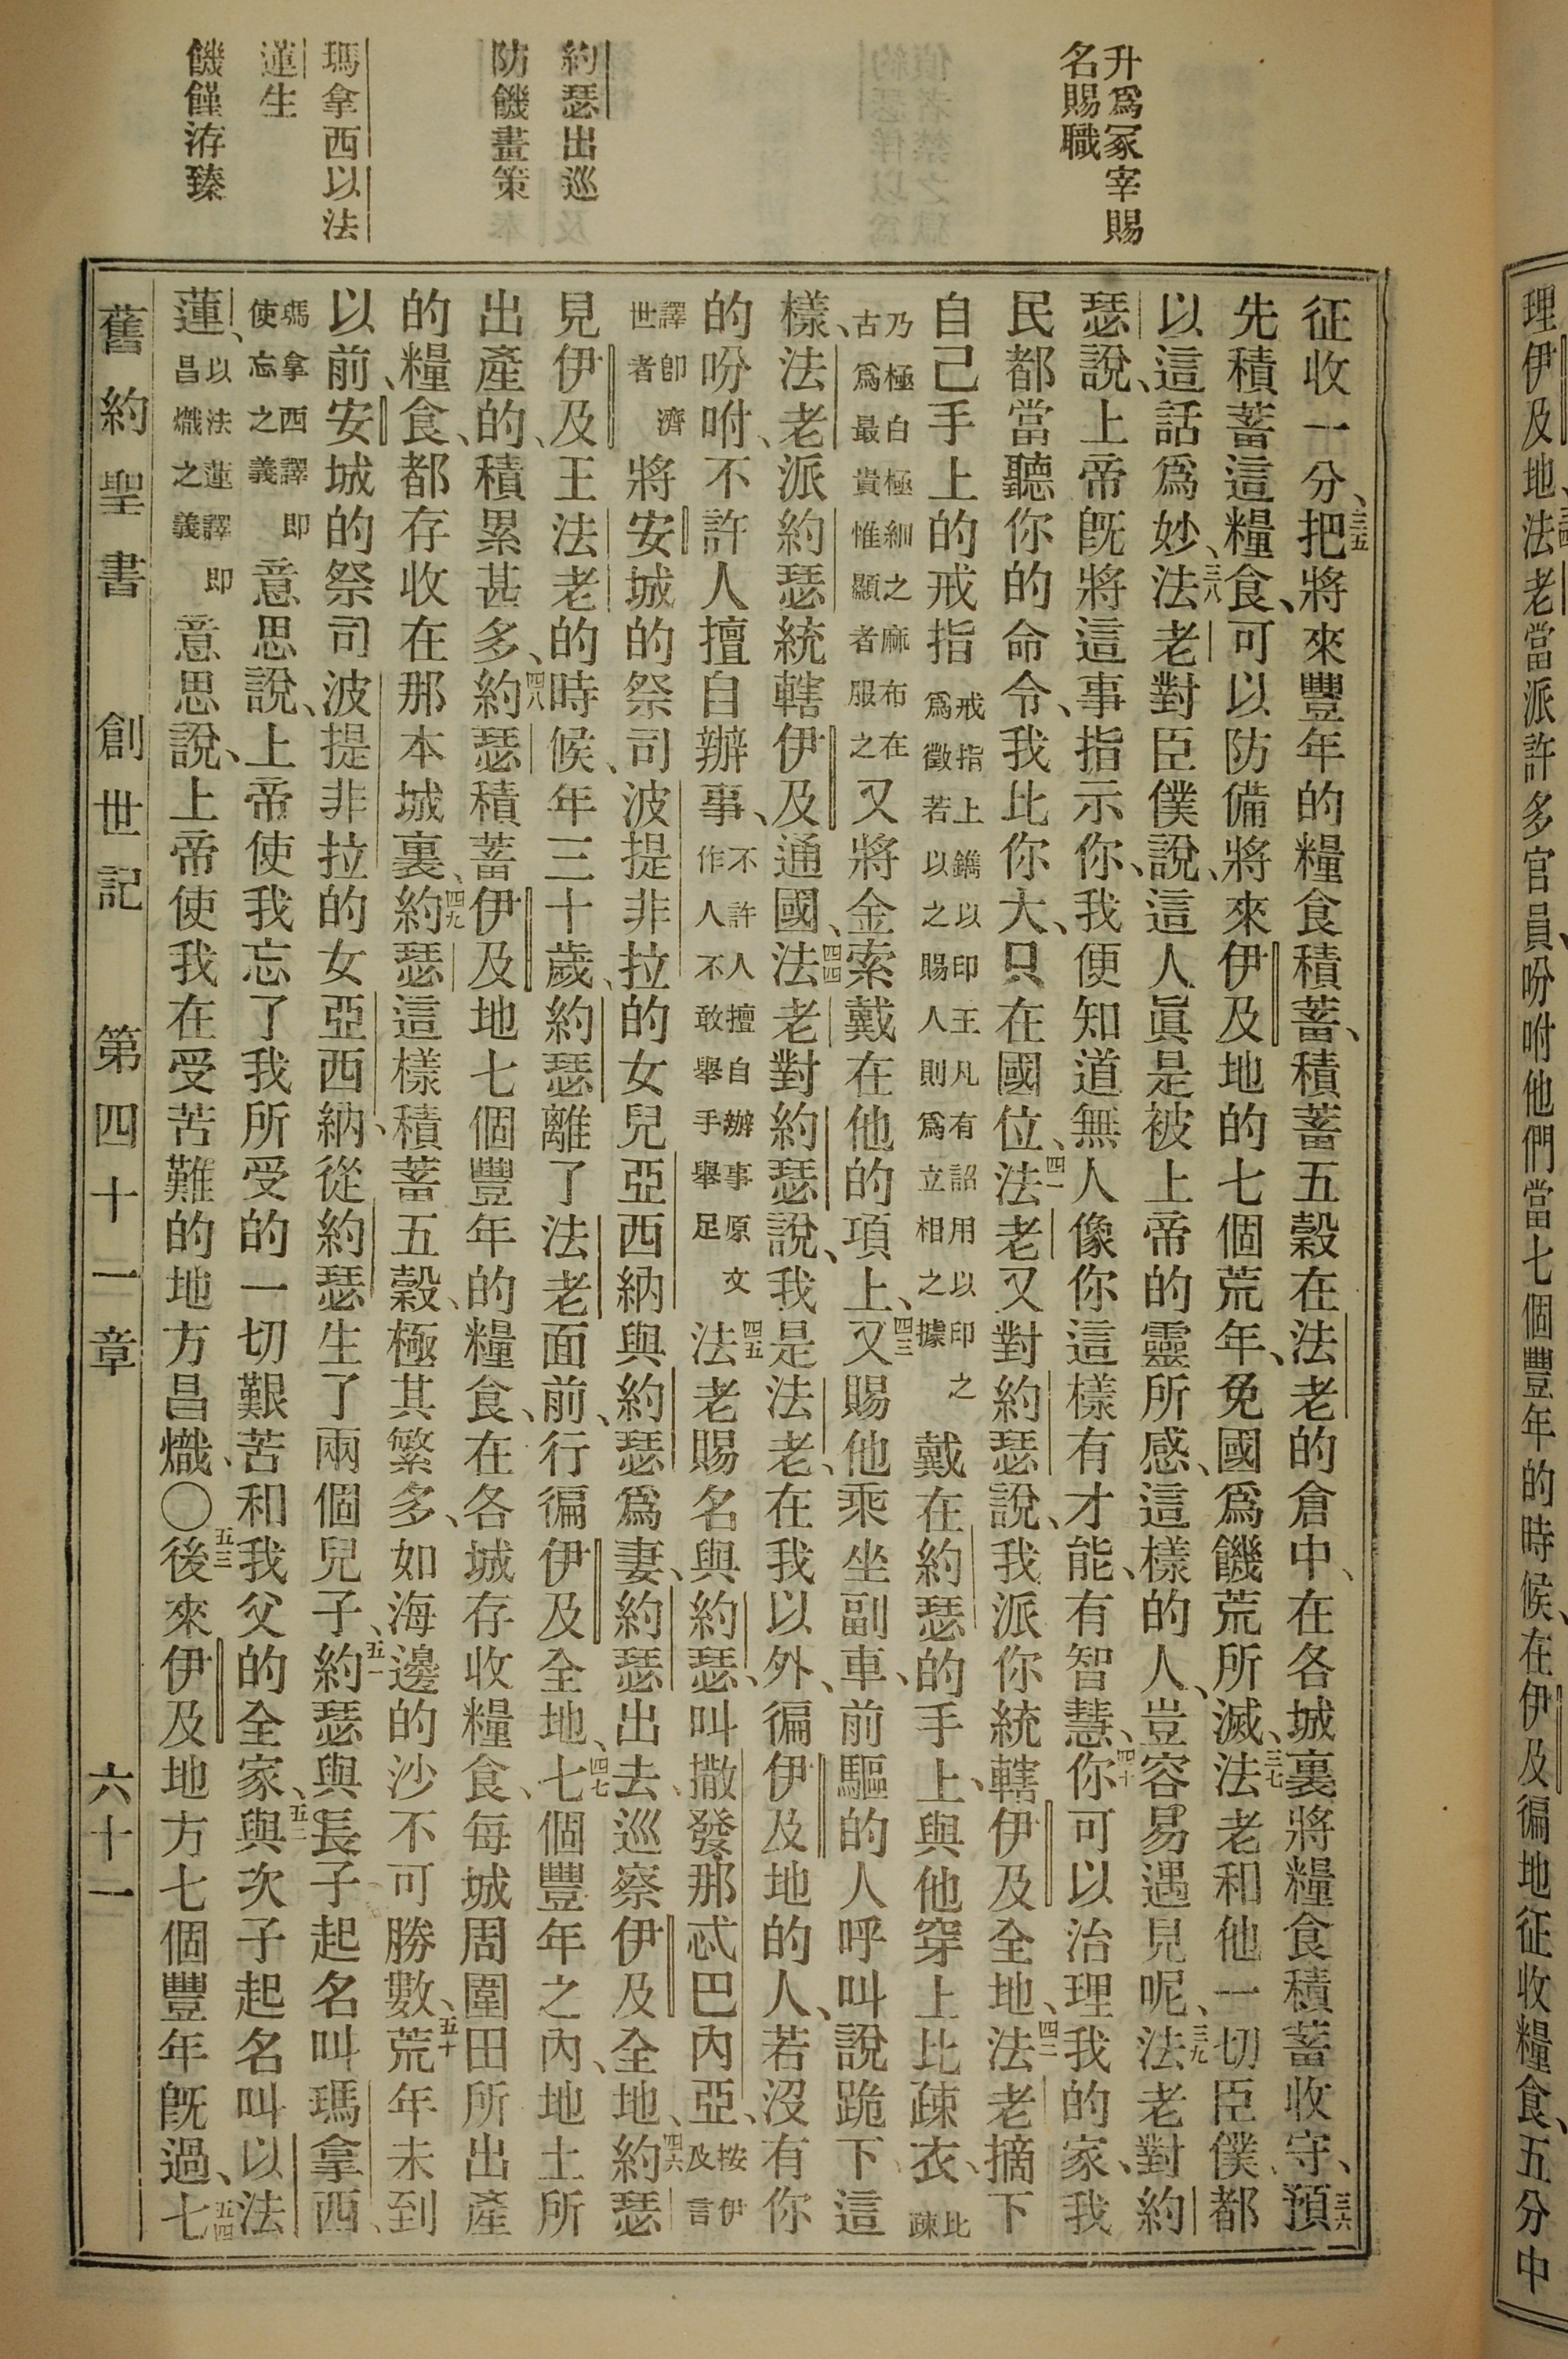 理伊及地、法老當派許多官員、吩咐他們當七個豐年的時候、在伊及徧地征收糧食、五分中
升爲冢宰賜
名賜職
約瑟出巡
防饑畫策
瑪拿西以法
蓮生
饑饉洊臻
征收一分、三五把將來豐年的糧食積蓄、積蓄五穀在法老的倉中、在各城裏將糧食積蓄收守、三六預
先積蓄這糧食、可以防備將來伊及地的七個荒年、免國爲饑荒所滅、三七法老和他一切臣僕、都
以這話爲妙、三八法老對臣僕說、這人眞是被上帝的靈所感、這樣的人、豈容易遇見呢、三九法老對約
瑟說、上帝旣將這事指示你、我便知道無人像你這樣有才能、有智慧、四十你可以治理我的家、我
民都當聽你的命令、我比你大、只在國位、四一法老又對約瑟說、我派你統轄伊及全地、四二法老摘下
自己手上的戒指戒指上鐫以印王凡有詔用以印之爲徵若以之賜人則爲立相之據戴在約瑟的手上、與他穿上比疎衣、比疎
乃極白極細之麻布在古爲最貴惟顯者服之又將金索戴在他的項上、四三又賜他乘坐副車、前驅的人呼叫說跪下、這
樣、法老派約瑟統轄伊及通國、四四法老對約瑟說、我是法老、在我以外、徧伊及地的人、若沒有你
的吩咐、不許人擅自辦事、不許人擅自辦事原文作人不敢舉手舉足四五法老賜名與約瑟、叫撒發那忒巴內亞、按伊及言
譯卽濟世者將安城的祭司波提非拉的女兒亞西納與約瑟爲妻、約瑟出去、巡察伊及全地、四六約瑟
見伊及王法老的時候、年三十歲、約瑟離了法老面前、行徧伊及全地、四七七個豐年之內、地土所
出產的、積累甚多、四八約瑟積蓄伊及地七個豐年的糧食、在各城存收糧食、每城周圍田所出產
的糧食、都存收在那本城裏、四九約瑟這樣積蓄五穀、極其繁多、如海邊的沙不可勝數、五十荒年未到
以前、安城的祭司波提非拉的女亞西納、從約瑟生了兩個兒子、五一約瑟與長子起名叫瑪拿西、
瑪拿西譯卽使忘之義意思說、上帝使我忘了我所受的一切艱苦和我父的全家、五二與次子起名叫以法
蓮、以法蓮譯卽昌熾之義意思說、上帝使我在受苦難的地方昌熾、〇五三後來伊及地方七個豐年旣過、五四七
舊約聖書 創世記 第四十一章 六十一